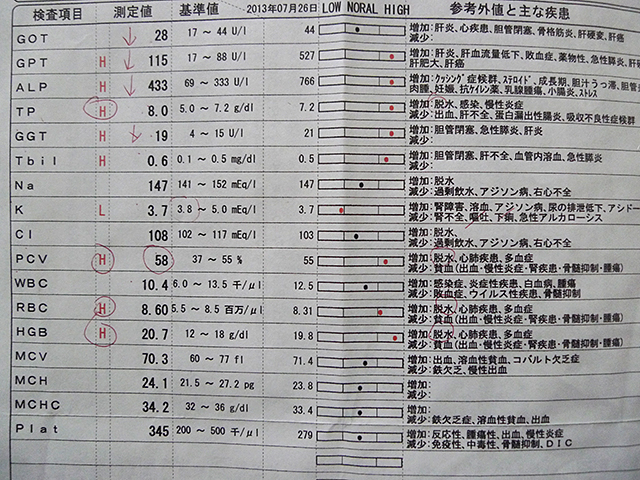 検査項目 測定値 基準値 2013年07月26日 LOW NORAL HIGH 参考外値と主な疾患
GOT ↓ 28 17 ～ 44 U/l 44 増加:肝炎、心疾患、胆管閉塞、骨格筋炎、肝硬変、肝癌
減少:
GPT H ↓ 115 17 ～ 88 U/l 527 増加:肝炎、肝血流量低下、敗血症、薬物性、急性膵炎、肝
減少:肝肥大、肝癌
ALP H ↓ 433 69 ～ 333 U/l 766 増加:クッシング症候群、ステロイド、成長期、胆汁うっ滞、胆管
肉腫、妊娠、抗けいれん薬、乳腺腫瘍、小腸炎、ストレス
TP H 8.0 5.0 ～ 7.2 g/dl 7.2 増加:脱水、感染、慢性炎症
減少:出血、肝不全、蛋白漏出性腸炎、吸収不良性症候群
GGT H ↓ 19 4 ～ 15 U/l 21 増加:胆管閉塞、急性膵炎、肝炎
減少:
Tbil H 0.6 0.1 ～ 0.5 mg/dl 0.5 増加:胆管閉塞、肝不全、血管内溶血、急性膵炎
減少:
Na 147 141 ～ 152 mEq/l 147 増加:脱水
減少:過剰飲水、アジソン病、右心不全
K L 3.7 3.8 ～ 5.0 mEq/l 3.7 増加:腎障害、溶血、アジソン病、尿の排泄低下、アシドー
減少:腎不全、嘔吐、下痢、急性アルカローシス
Cl 108 102 ～ 117 mEq/l 103 増加:脱水、
減少:過剰飲水、アジソン病、右心不全
PCV H 58 37 ～ 55 % 55 増加:脱水、心肺疾患、多血症
減少:貧血(出血・慢性炎症・腎疾患・骨髄抑制・腫瘍)
WBC 10.4 6.0 ～ 13.5 千/μl 12.5 増加:感染症、炎症性疾患、白血病、腫瘍
減少:敗血症、ウイルス性疾患、骨髄抑制
RBC H 8.60 5.5 ～ 8.5 百万/μl 8.31 増加:脱水、心肺疾患、多血症
減少:貧血(出血・慢性炎症・腎疾患・骨髄抑制・腫瘍)
HGB H 20.7 12 ～ 18 g/dl 19.8 増加:脱水、心肺疾患、多血症
減少:貧血(出血・慢性炎症・腎疾患・骨髄抑制・腫瘍)
MCV 70.3 60 ～ 77 fl 71.4 増加:出血、溶血性貧血、コバルト欠乏症
減少:鉄欠乏、慢性出血
MCH 24.1 21.5 ～ 27.2 pg 23.8 増加:
減少:
MCHC 34.2 32 ～ 36 g/dl 33.4 増加:
減少:鉄欠乏症、溶血性貧血、出血
Plat 345 200 ～ 500 千/μl 279 増加:反応性、腫瘍性、出血、慢性炎症
減少:免疫性、中毒性、骨髄抑制、DIC